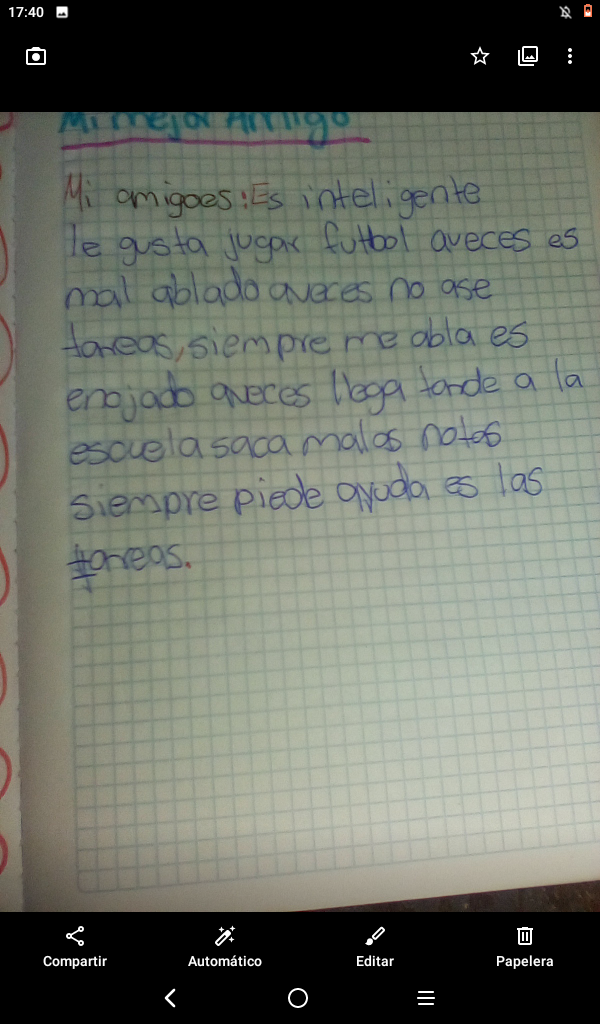 17:40
Mi mejor Amigo
Mi amigoes: Es inteligente
le gusta jugar futbol aveces es
mal ablado aveces no ase
tareas, siempre me abla es
enojado aveces llega tarde a la
escuela saca malas notas
siempre piede ayuda es las
tareas.
Compartir Automático Editar Papelera